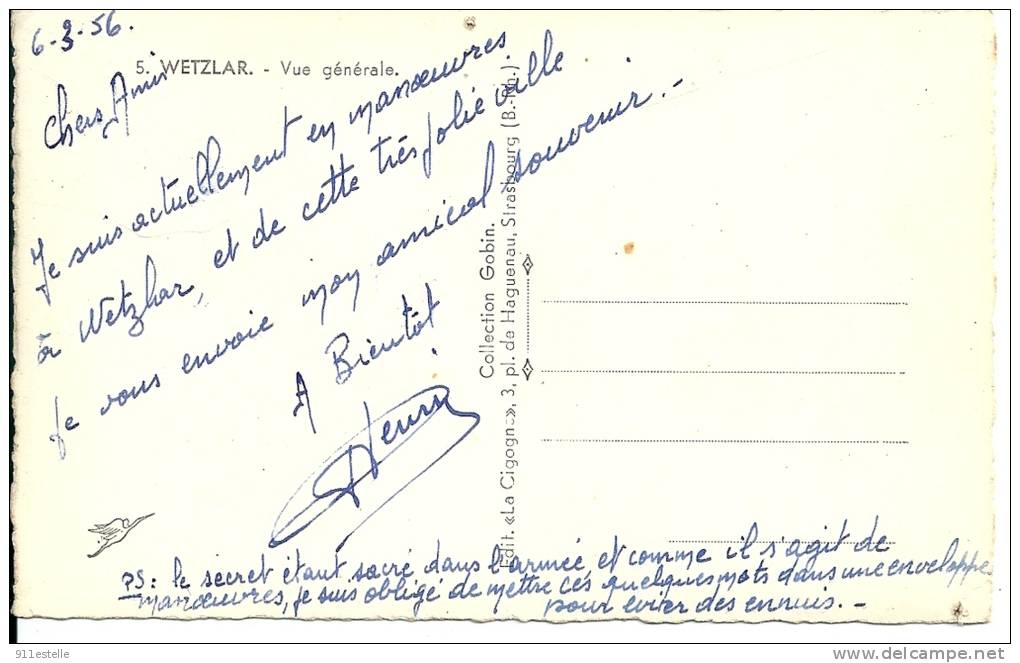 6-3-56.
5. WETZLAR. - Vue générale.
Chers Amis
Je suis actuellement en manœuvres
à Wetzlar, et de cette très jolie ville
je vous envoie mon amical souvenir.-
A Bientôt
Henri
Collection Gobin.
Edit. «La Cigogne», 3, pl. de Haguenau, Strasbourg (B.-Rh.)
PS: le secret étant sacré dans l'armée et comme il s'agit de
manœuvres, je suis obligé de mettre ces quelques mots dans une enveloppe
pour éviter des ennuis.-
911estelle
http://www.delcampe.net